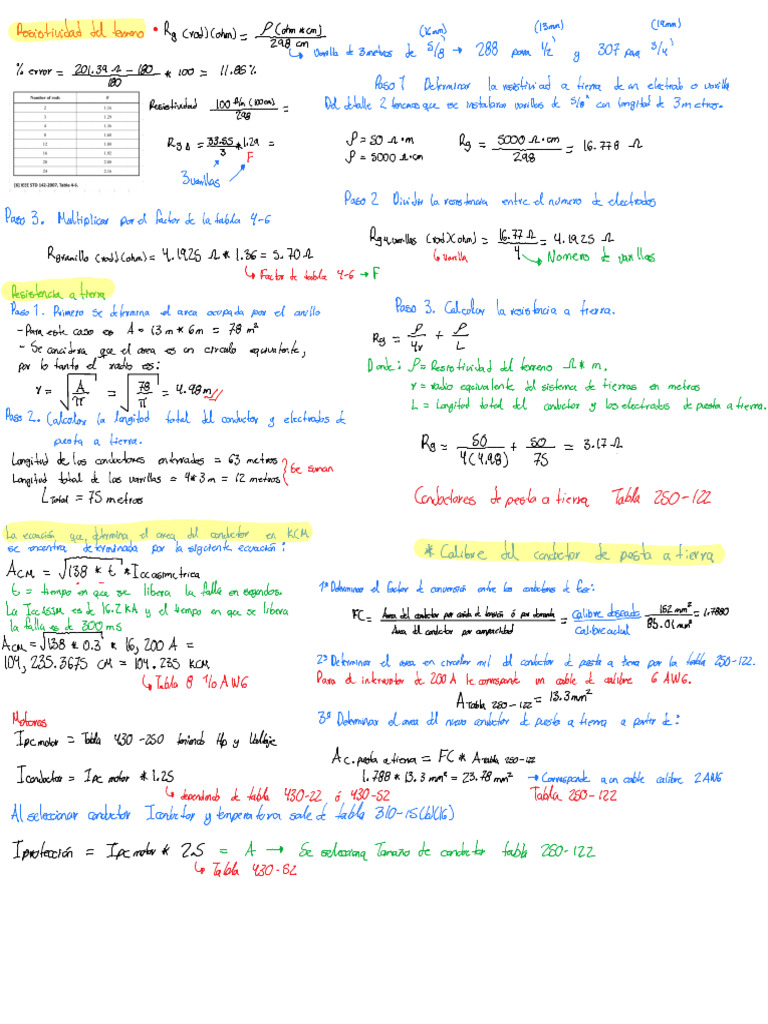 Resistividad del terreno • Rg (rod)(ohm) = ρ(ohm*cm) / 298 cm
(16mm) (13mm) (19mm)
↳ Varilla de 3 metros de 5/8 → 288 para 1/2' y 307 para 3/4'
% error = 201.39 Ω - 180 / 180 * 100 = 11.88 %
Number of rods F
2 1.16
3 1.29
4 1.36
8 1.68
12 1.80
16 1.92
20 2.00
24 2.16
[6] IEEE STD 142-2007, Tabla 4-6.
Resistividad 100 Ω/m (100cm) / 298 =
Rg Δ = 33.55 / 3 * 1.29 =
3 varillas F
Paso 1 Determinar la resistividad a tierra de un electrodo o varilla
Del detalle 2 tenemos que se instalaran varillas de 5/8" con longitud de 3 metros.
ρ = 50 Ω·m
ρ = 5000 Ω·cm
Rg = 5000 Ω·cm / 298 = 16.778 Ω
Paso 2 Dividir la resistencia entre el numero de electrodos
Rg 4 varillas (rod)(ohm) = 16.77 Ω / 4 = 4.1925 Ω
↳ varilla → Numero de varillas
Paso 3. Multiplicar por el factor de la tabla 4-6
Rg anillo (rod)(ohm) = 4.1925 Ω * 1.36 = 5.70 Ω
↳ Factor de tabla 4-6 → F
Resistencia a tierra
Paso 1. Primero se determina el area ocupada por el anillo
- Para este caso es A = 13 m * 6m = 78 m²
- Se considera que el area es un circulo equivalente,
por lo tanto el radio es:
r = √A/π = √78/π = 4.98 m
Paso 2. Calcular la longitud total del conductor y electrodos de
puesta a tierra.
Longitud de los conductores enterrados = 63 metros
Longitud total de las varillas = 4*3 m = 12 metros
Se suman
L Total = 75 metros
Paso 3. Calcular la resistencia a tierra.
Rg = ρ/4r + ρ/L
Donde: ρ = Resistividad del terreno Ω * m.
r = radio equivalente del sistema de tierras en metros
L = Longitud total del conductor y los electrodos de puesta a tierra.
Rg = 50 / 4(4.98) + 50 / 75 = 3.17 Ω
Conductores de pesta a tierra Tabla 250-122
La ecuación que determina el area del conductor en KCM
se encuentra determinada por la siguiente ecuación:
A CM = √138 * t * Icc asimetrica
t = tiempo en que se libera la falla en segundos.
La Icc asim es de 16.2 KA y el tiempo en que se libera
la falla es de 300 ms
A CM = √138 * 0.3 * 16,200 A =
104,235.3675 CM = 104.235 KCM
↳ Tabla 8 1/0 AWG
* Calibre del conductor de pesta a tierra
1º Determinar el factor de conversión entre los conductores de fase:
FC = Area del conductor por caida de tensión ó por demanda / Area del conductor por ampacidad = calibre deseado / calibre actual 152 mm² / 85.01 mm² = 1.7880
2º Determina el area en circular mil del conductor de pesta a tierra por la tabla 250-122.
Para el interruptor de 200 A le corresponde un cable de calibre 6 AWG.
A Tabla 250-122 = 13.3 mm²
3º Determinar el area del nuevo conductor de puesta a tierra a partir de:
A c.pesta a tierra = FC * A Tabla 250-122
1.788 * 13.3 mm² = 23.78 mm² → Corresponde a un cable calibre 2 AWG
Tabla 250-122
Motores
Ipc motor = Tabla 430-250 teniendo Hp y Voltaje
I conductor = Ipc motor * 1.25
↳ dependiendo de tabla 430-22 ó 430-52
Al seleccionar conductor Iconductor y temperatura sale de tabla 310-15(b)(16)
I protección = Ipc motor * 2.5 = A → Se selecciona Tamaño de conductor tabla 250-122
↳ Tabla 430-52